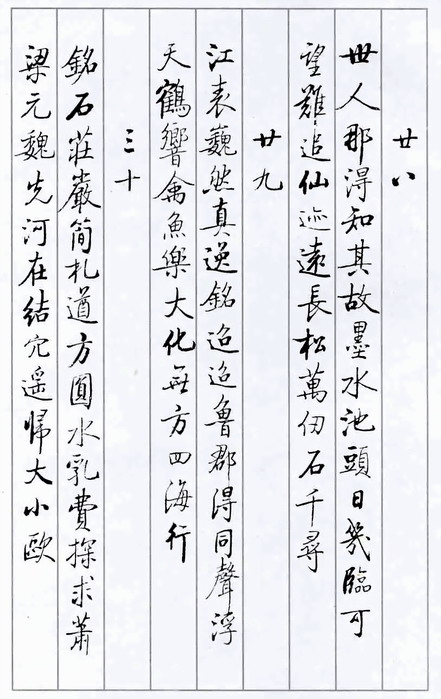 廿八
世人那得知其故墨水池頭日幾臨可
望難追仙迹遠長松萬仞石千尋
廿九
江表巍然真逸銘迢迢魯郡得同聲浮
天鶴響禽魚樂大化無方四海行
三十
銘石莊嚴簡札遒方圓水乳費探求蕭
梁元魏先河在結穴遥歸大小歐